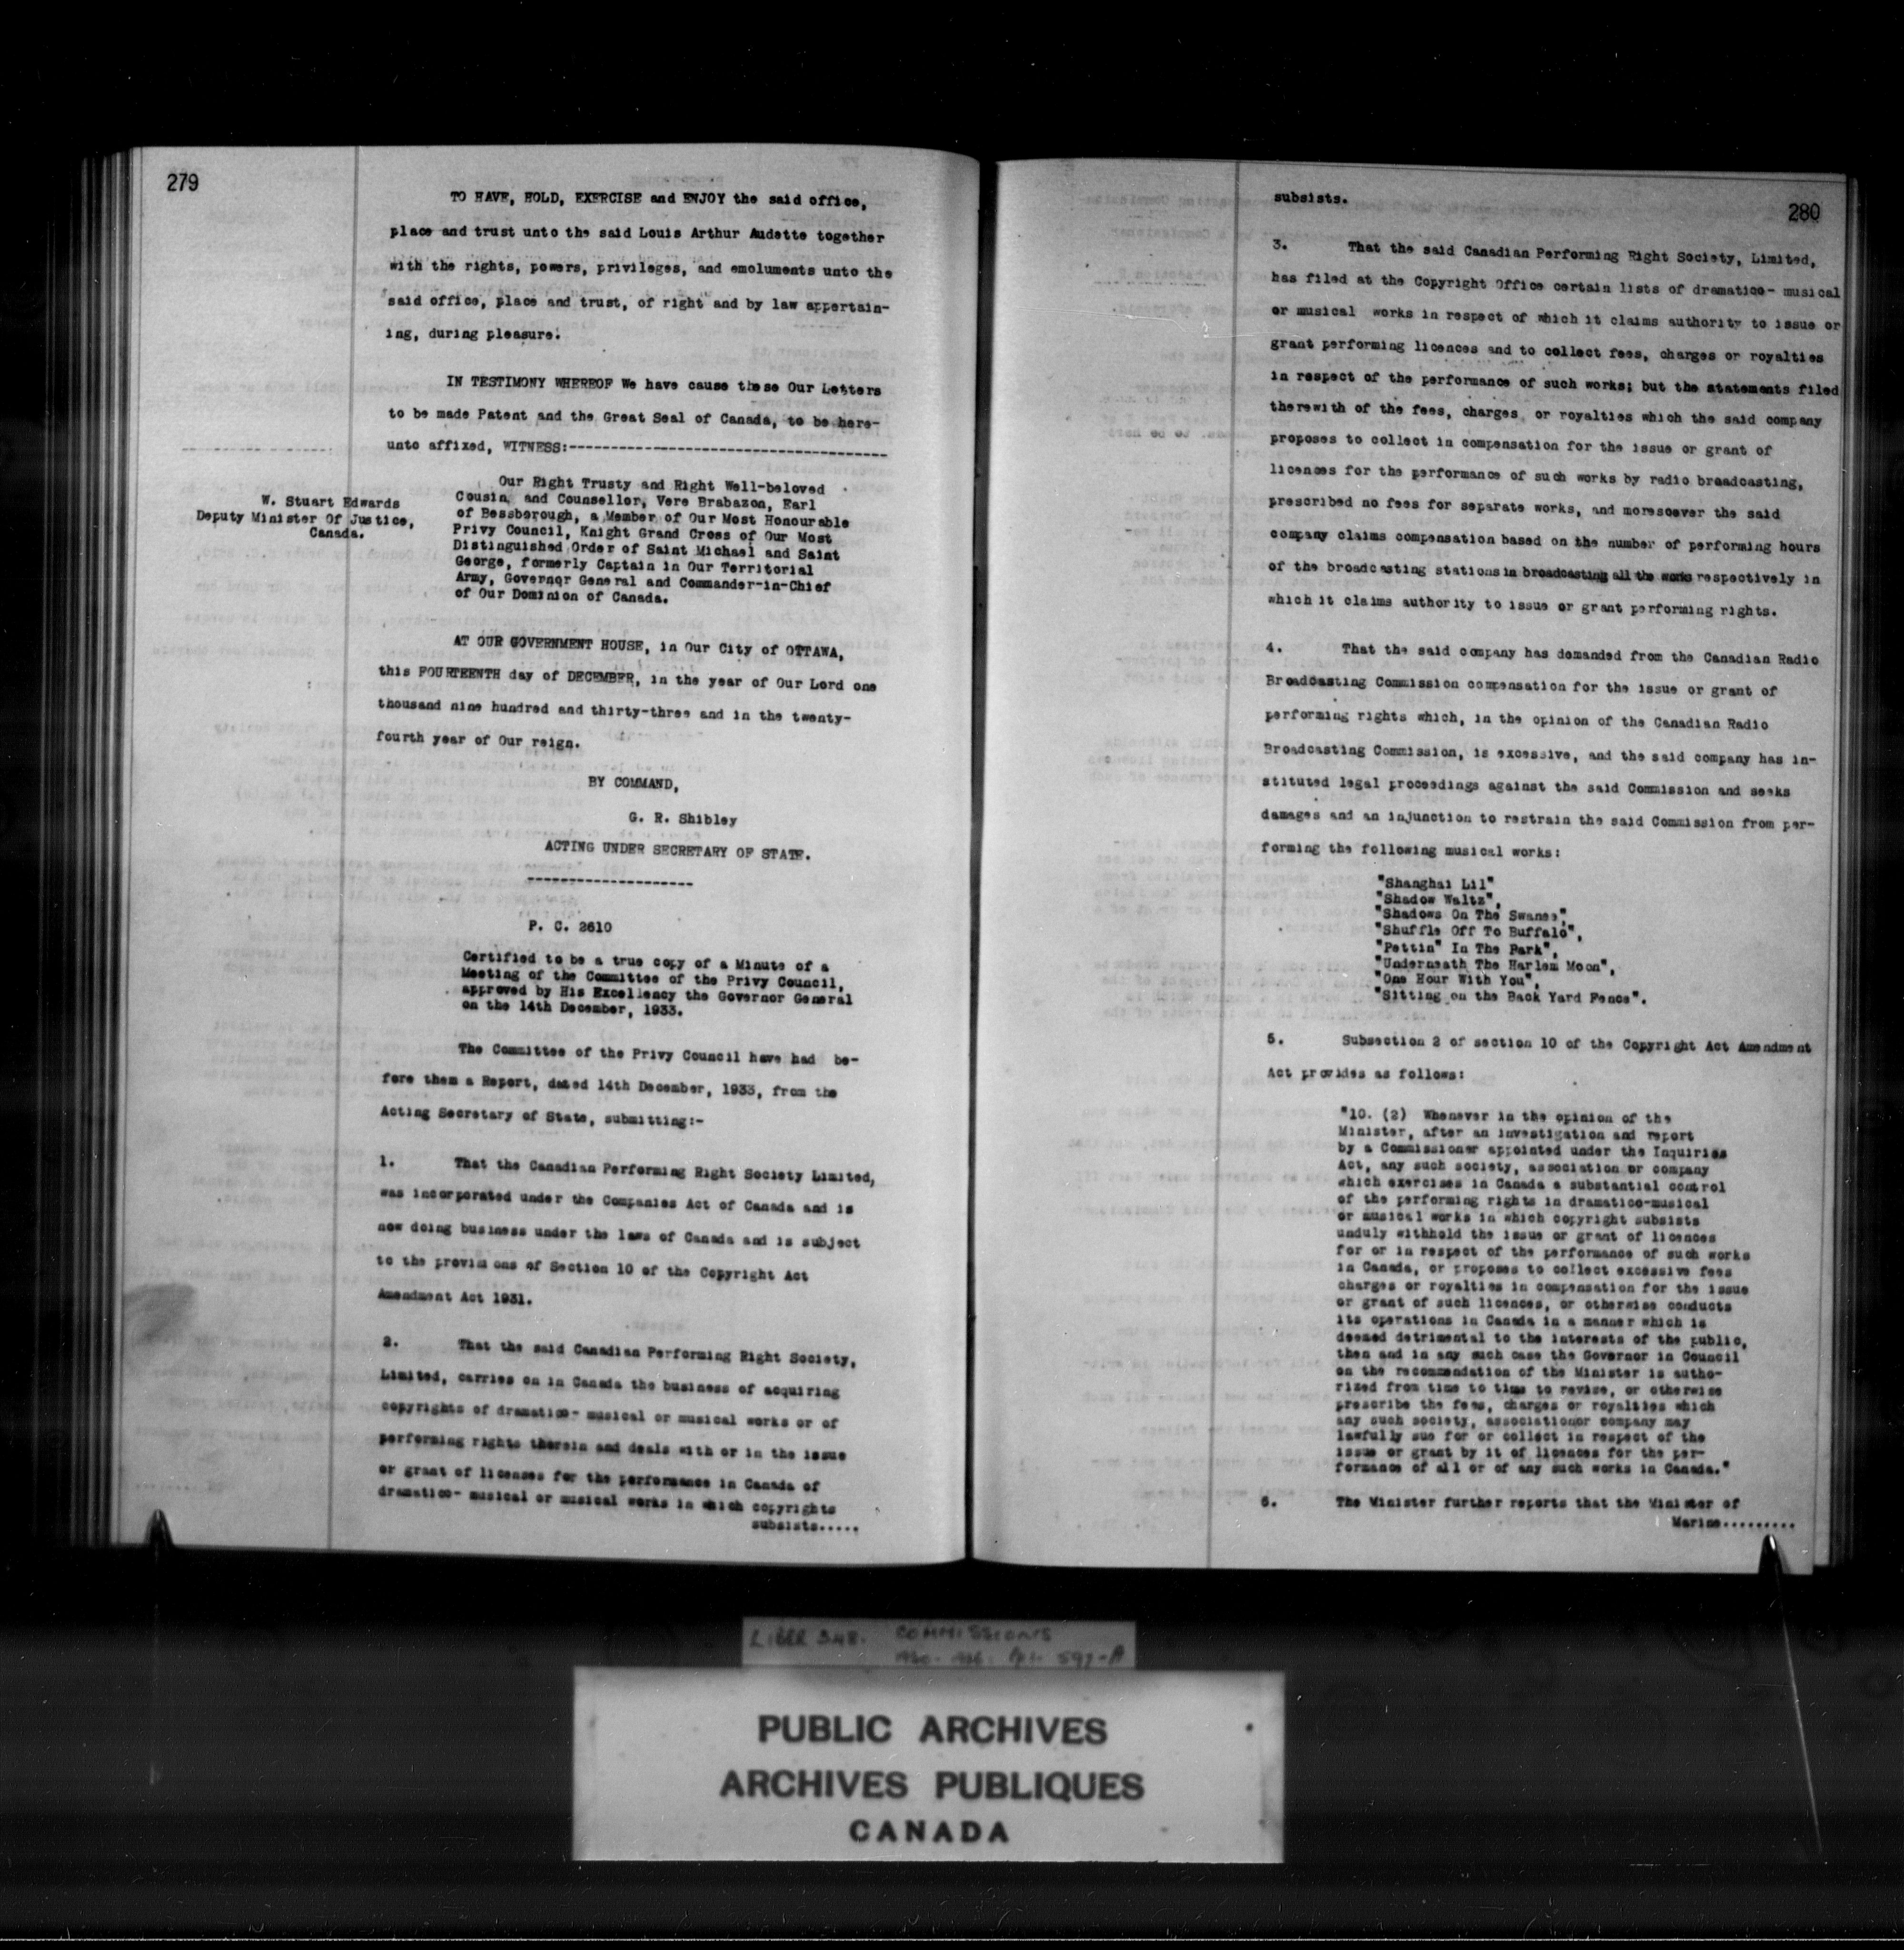 279
TO HAVE, HOLD, EXERCISE and ENJOY the said office,
place and trust unto the said Louis Arthur Audette together
with the rights, powers, privileges, and emoluments unto the
said office, place and trust, of right and by law appertain-
ing, during pleasure.
IN TESTIMONY WHEREOF We have cause these Our Letters
to be made Patent and the Great Seal of Canada, to be here-
unto affixed, WITNESS:--------------------------------------
W. Stuart Edwards
Deputy Minister Of Justice,
Canada.
Our Right Trusty and Right Well-beloved
Cousin, and Counsellor, Vere Brabazon, Earl
of Bessborough, a Member of Our Most Honourable
Privy Council, Knight Grand Cross of Our Most
Distinguished Order of Saint Michael and Saint
George, formerly Captain in Our Territorial
Army, Governor General and Commander-in-Chief
of Our Dominion of Canada.
AT OUR GOVERNMENT HOUSE, in Our City of OTTAWA,
this FOURTEENTH day of DECEMBER, in the year of Our Lord one
thousand nine hundred and thirty-three and in the twenty-
fourth year of Our reign.
BY COMMAND,
G. R. Shibley
ACTING UNDER SECRETARY OF STATE.
--------------------
P. C. 2610
Certified to be a true copy of a Minute of a
Meeting of the Committee of the Privy Council,
approved by His Excellency the Governor General
on the 14th December, 1933.
The Committee of the Privy Council have had be-
fore them a Report, dated 14th December, 1933, from the
Acting Secretary of State, submitting:-
1. That the Canadian Performing Right Society Limited,
was incorporated under the Companies Act of Canada and is
now doing business under the laws of Canada and is subject
to the provisions of Section 10 of the Copyright Act
Amendment Act 1931.
2. That the said Canadian Performing Right Society,
Limited, carries on in Canada the business of acquiring
copyrights of dramatico- musical or musical works or of
performing rights therein and deals with or in the issue
or grant of licenses for the performance in Canada of
dramatico- musical or musical works in which copyrights
subsists.....
280
subsists.
3. That the said Canadian Performing Right Society, Limited,
has filed at the Copyright Office certain lists of dramatico- musical
or musical works in respect of which it claims authority to issue or
grant performing licences and to collect fees, charges or royalties
in respect of the performance of such works; but the statements filed
therewith of the fees, charges or royalties which the said company
proposes to collect in compensation for the issue or grant of
licences for the performance of such works by radio broadcasting,
prescribed no fees for separate works, and moresoever the said
company claims compensation based on the number of performing hours
of the broadcasting stations in broadcasting all the works respectively in
which it claims authority to issue or grant performing rights.
4. That the said company has demanded from the Canadian Radio
Broadcasting Commission compensation for the issue or grant of
performing rights which, in the opinion of the Canadian Radio
Broadcasting Commission, is excessive, and the said company has in-
stituted legal proceedings against the said Commission and seeks
damages and an injunction to restrain the said Commission from per-
forming the following musical works:
"Shanghai Lil"
"Shadow Waltz",
"Shadows On The Swanee",
"Shuffle Off To Buffalo",
"Pettin" In The Park",
"Underneath The Harlem Moon",
"One Hour With You",
"Sitting on the Back Yard Fence".
5. Subsection 2 of section 10 of the Copyright Act Amendment
Act provides as follows:
"10. (2) Whenever in the opinion of the
Minister, after an investigation and report
by a Commissioner appointed under the Inquiries
Act, any such society, association or company
which exercises in Canada a substantial control
of the performing rights in dramatico-musical
or musical works in which copyright subsists
unduly withhold the issue or grant of licences
for or in respect of the performance of such works
in Canada, or proposes to collect excessive fees
charges or royalties in compensation for the issue
or grant of such licences, or otherwise conducts
its operations in Canada in a manner which is
deemed detrimental to the interests of the public,
then and in any such case the Governor in Council
on the recommendation of the Minister is autho-
rized from time to time to revise, or otherwise
prescribe the fees, charges or royalties which
any such society, associationor company may
lawfully sue for or collect in respect of the
issue or grant by it of licences for the per-
formance of all or of any such works in Canada."
6. The Minister further reports that the Minister of
Marine.........
LIBER 348. COMMISSIONS
597-A
PUBLIC ARCHIVES
ARCHIVES PUBLIQUES
CANADA